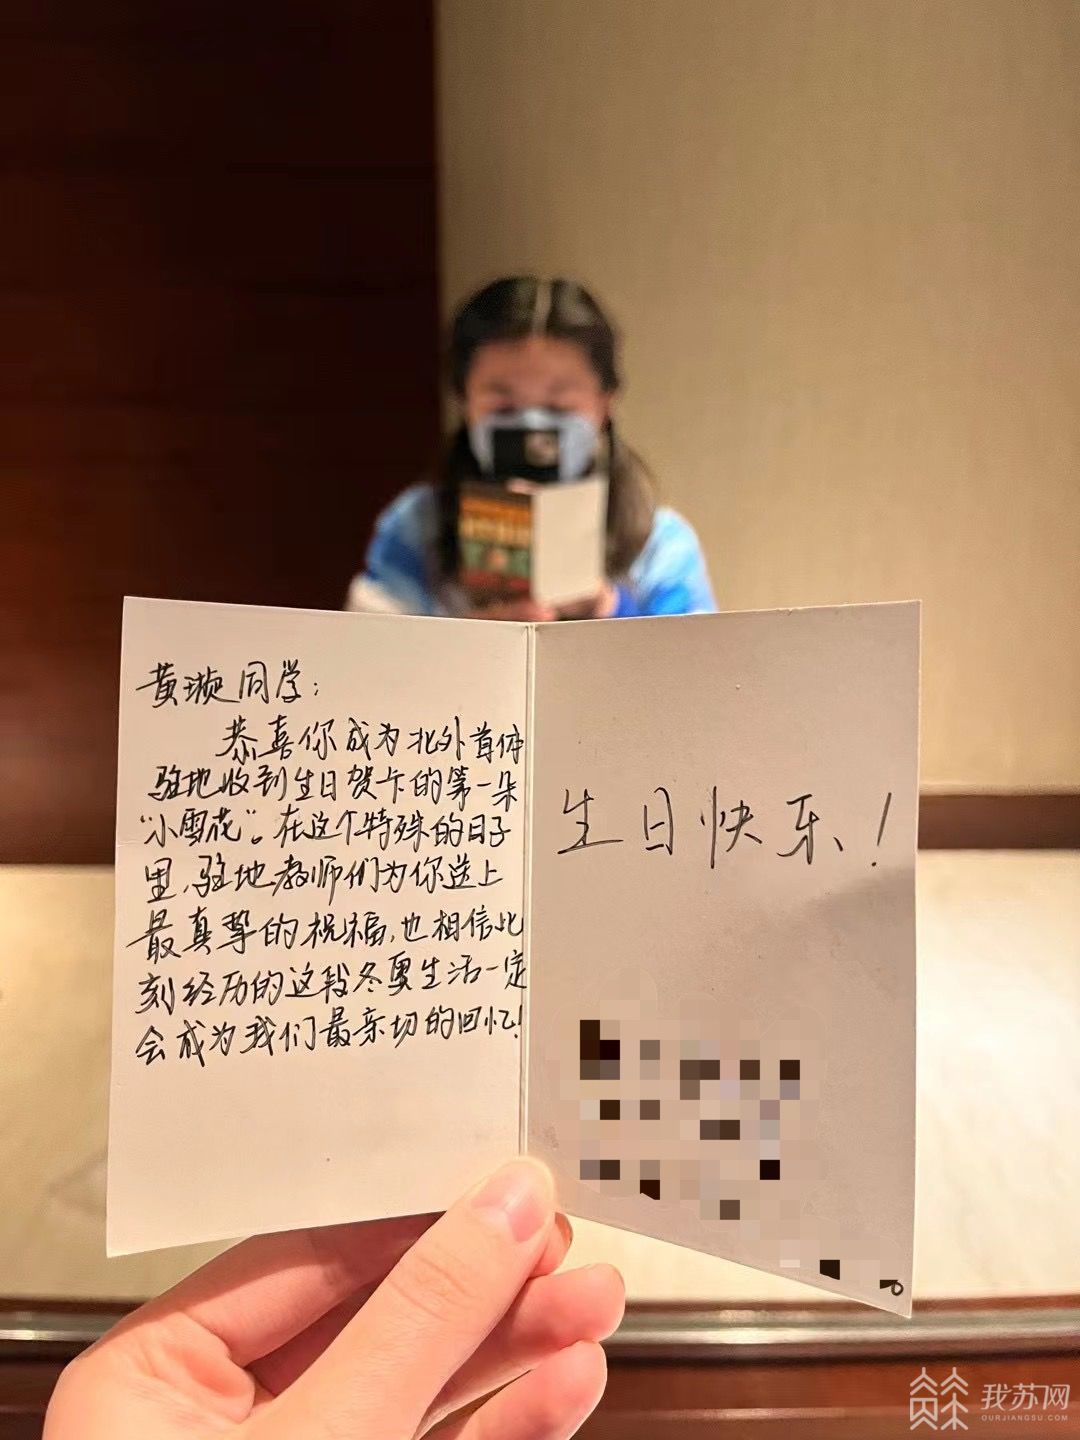 黄璇同学：
恭喜你成为北外首体
驻地收到生日贺卡的第一朵
“小雪花”。在这个特殊的日子
里，驻地教师们为你送上
最真挚的祝福，也相信此
刻经历的这段冬奥生活一定
会成为我们最亲切的回忆！
生日快乐！
我苏网
OURJIANGSU.COM